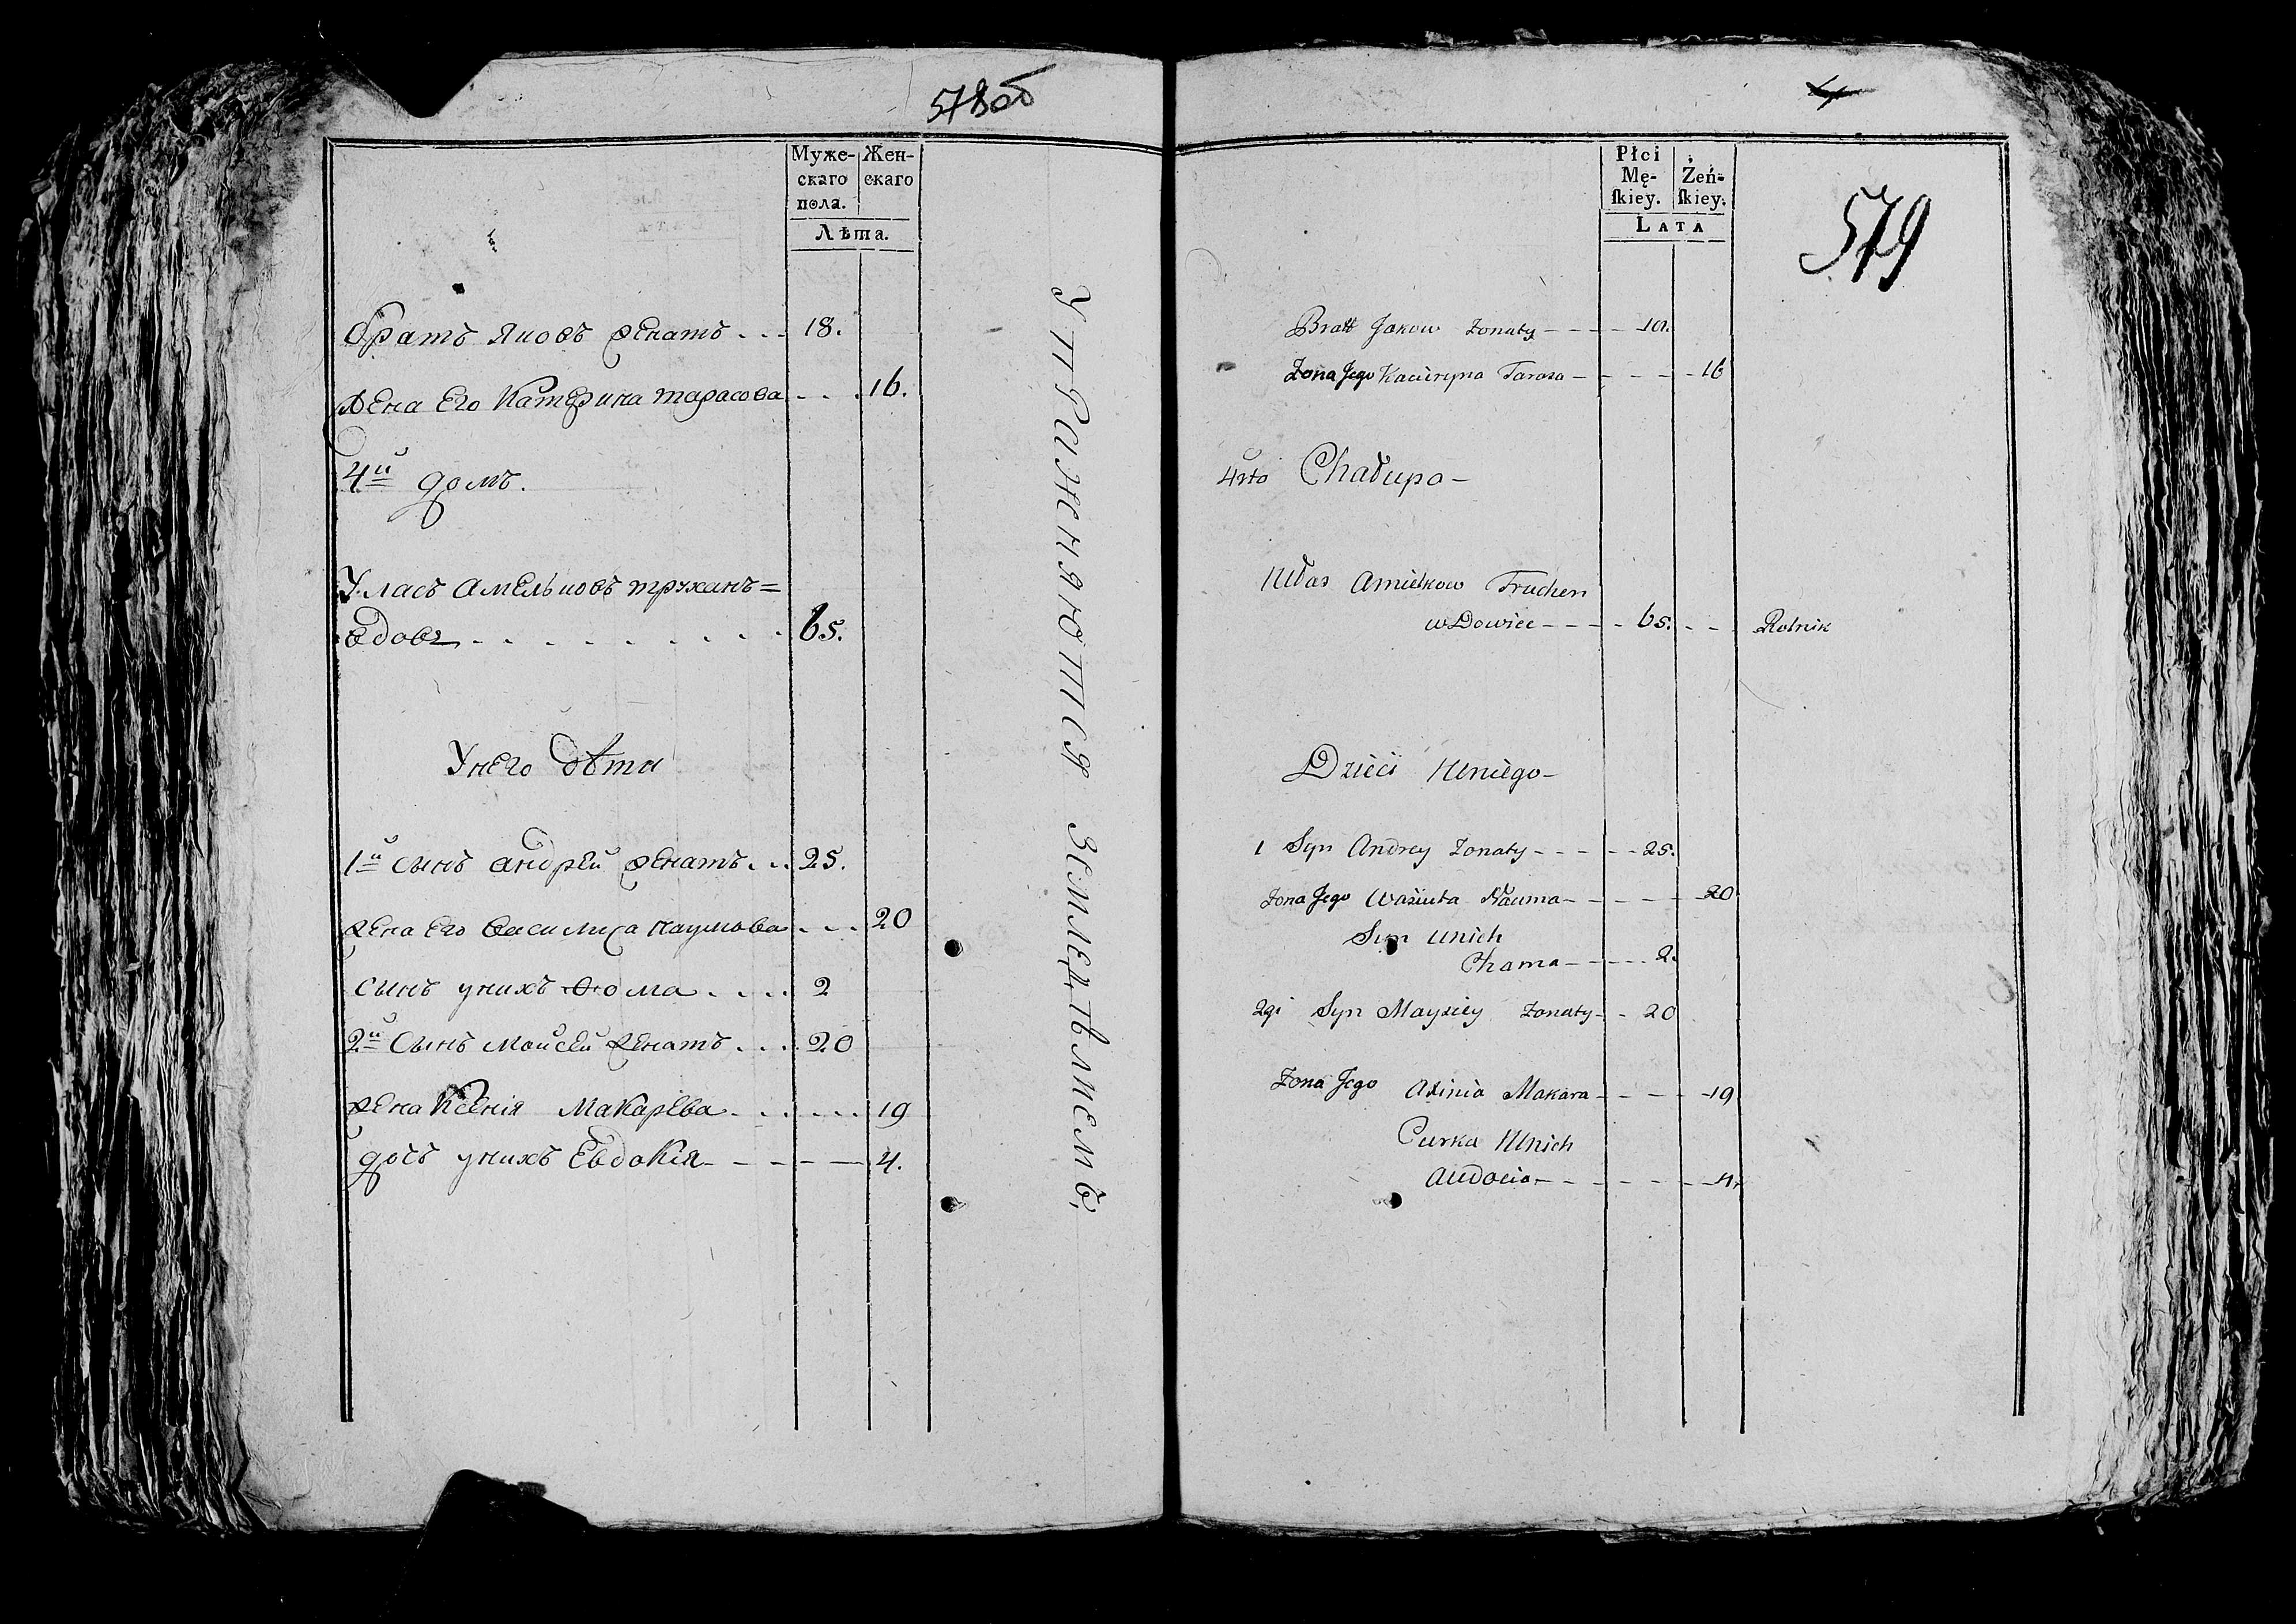 578об
Муже- Жен-
скаго скаго
пола.
Лѣта.
братъ Яковъ женатъ . . . 18.
жена Его Катерина тарасова . . . 16.
4й домъ.
Уласъ Амельковъ труханъ=
вдовъ . . . . . . . . . 65.
Унего дѣти
1й сынъ андрей женатъ . . . 25.
жена Его василиса наумова . . . 20
сынъ унихъ Ѳома . . . . 2
2й Сынъ Моисей женатъ . . . 20
жена Ксенія Макарева . . . . . 19
дочъ унихъ Евдокія - - - - 4.
Упражняются земледѣлиемъ.
Płci
Mę- Żeń-
ſkiey. ſkiey.
LATA
579
Bratt Jakow żonaty - - - - 18.
Żona Jego Kaciéryna Tarasa - - - - - 16
4rto Chałupa -
Ułas Amielkow Truchen
wdowiec - - - - 65. - - Rolnik
Dzieci Uniego -
1 Syn Andrey żonaty - - - - - 25.
żona Jego Wasiuta Nauma - - - - - 20
Syn Unich
Chama - - - - - 2.
2gi Syn Maysiey żonaty - - 20
Żona Jego Axinia Makara - - - - 19
Curka Unich
Audocia - - - - - - 4.